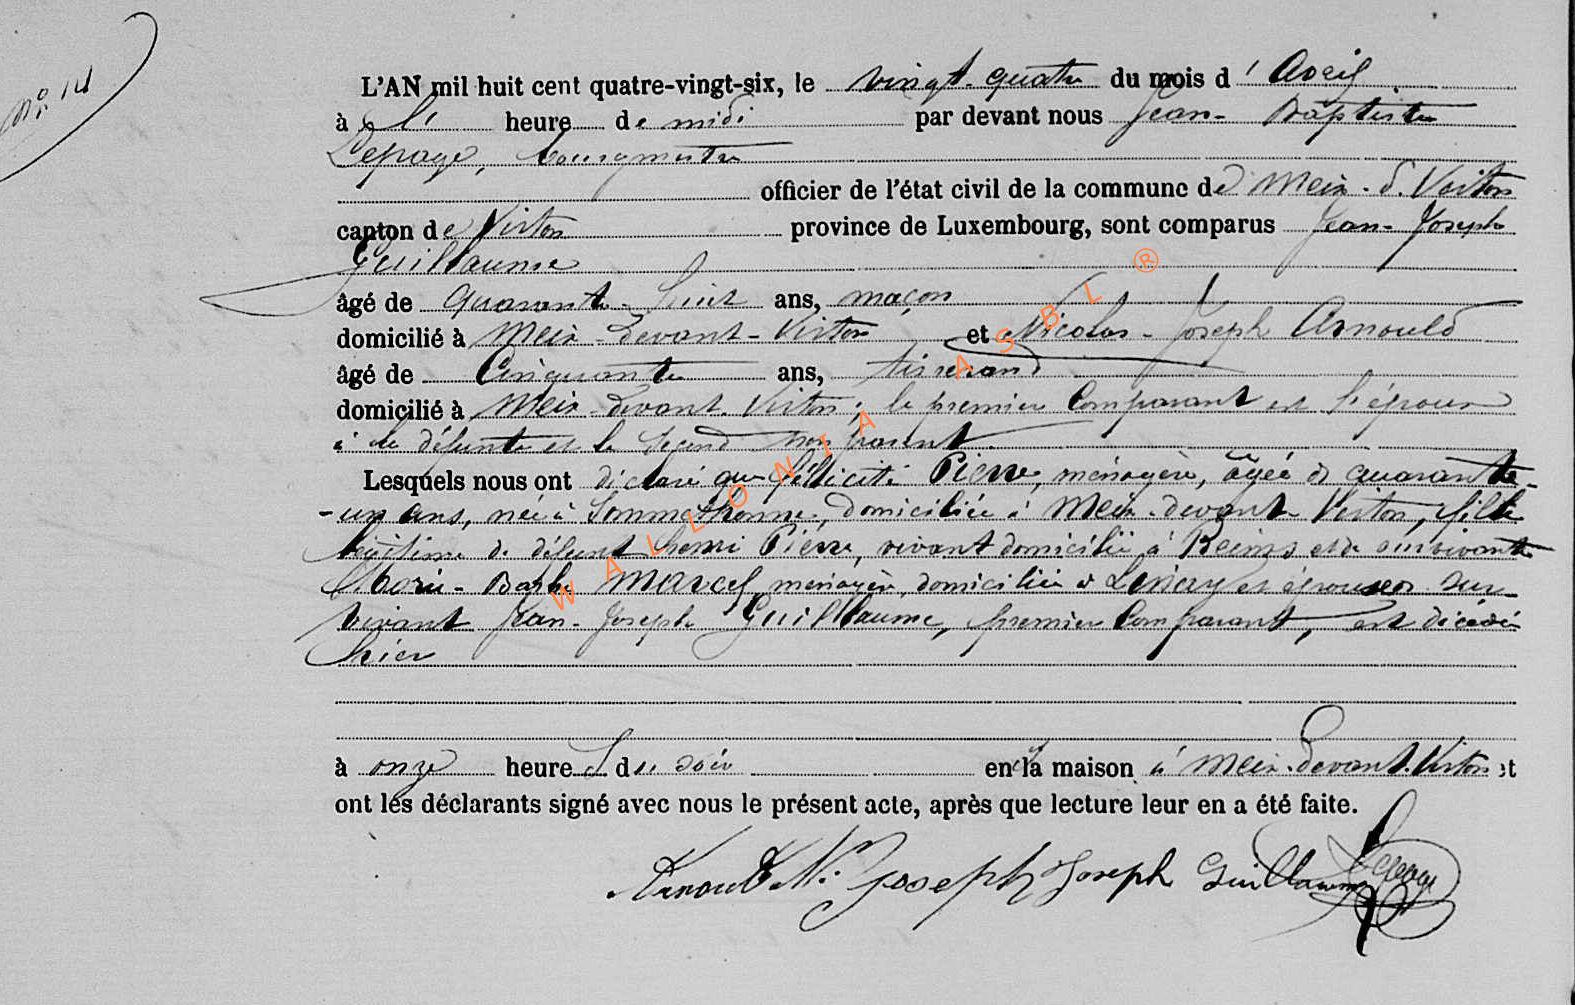 N° 14
L'AN mil huit cent quatre-vingt-six, le vingt-quatre du mois d'Avril
à l' heure de midi par devant nous Jean-Baptiste
Lepage, bourgmestre
officier de l'état civil de la commune de Meix-d.-Virton
canton de Virton province de Luxembourg, sont comparus Jean-Joseph
Guillaume
âgé de quarante-huit ans, maçon
domicilié à Meix-devant-Virton et Nicolas-Joseph Arnould
âgé de Cinquante ans, tisserand
domicilié à Meix-devant-Virton; le premier Comparant est l'époux
à la défunte et le second non parent.
Lesquels nous ont déclaré que Félicité Pierre, ménagère, âgée de quarante-
-un ans, née à Sommethonne, domiciliée à Meix-devant-Virton, fille
légitime de défunt henri Pierre, vivant domicilié à Reims et de survivante
Marie-Barbe Marcel, ménagère, domiciliée à et épouse sur
vivant Jean-Joseph Guillaume, premier Comparant, est décédée
hier
à onze heures du soir en sa maison à Meix-devant-Virton et
ont les déclarants signé avec nous le présent acte, après que lecture leur en a été faite.
Arnould N. Joseph Joseph Guillaume Lepage
WALLONIA ASBL ®